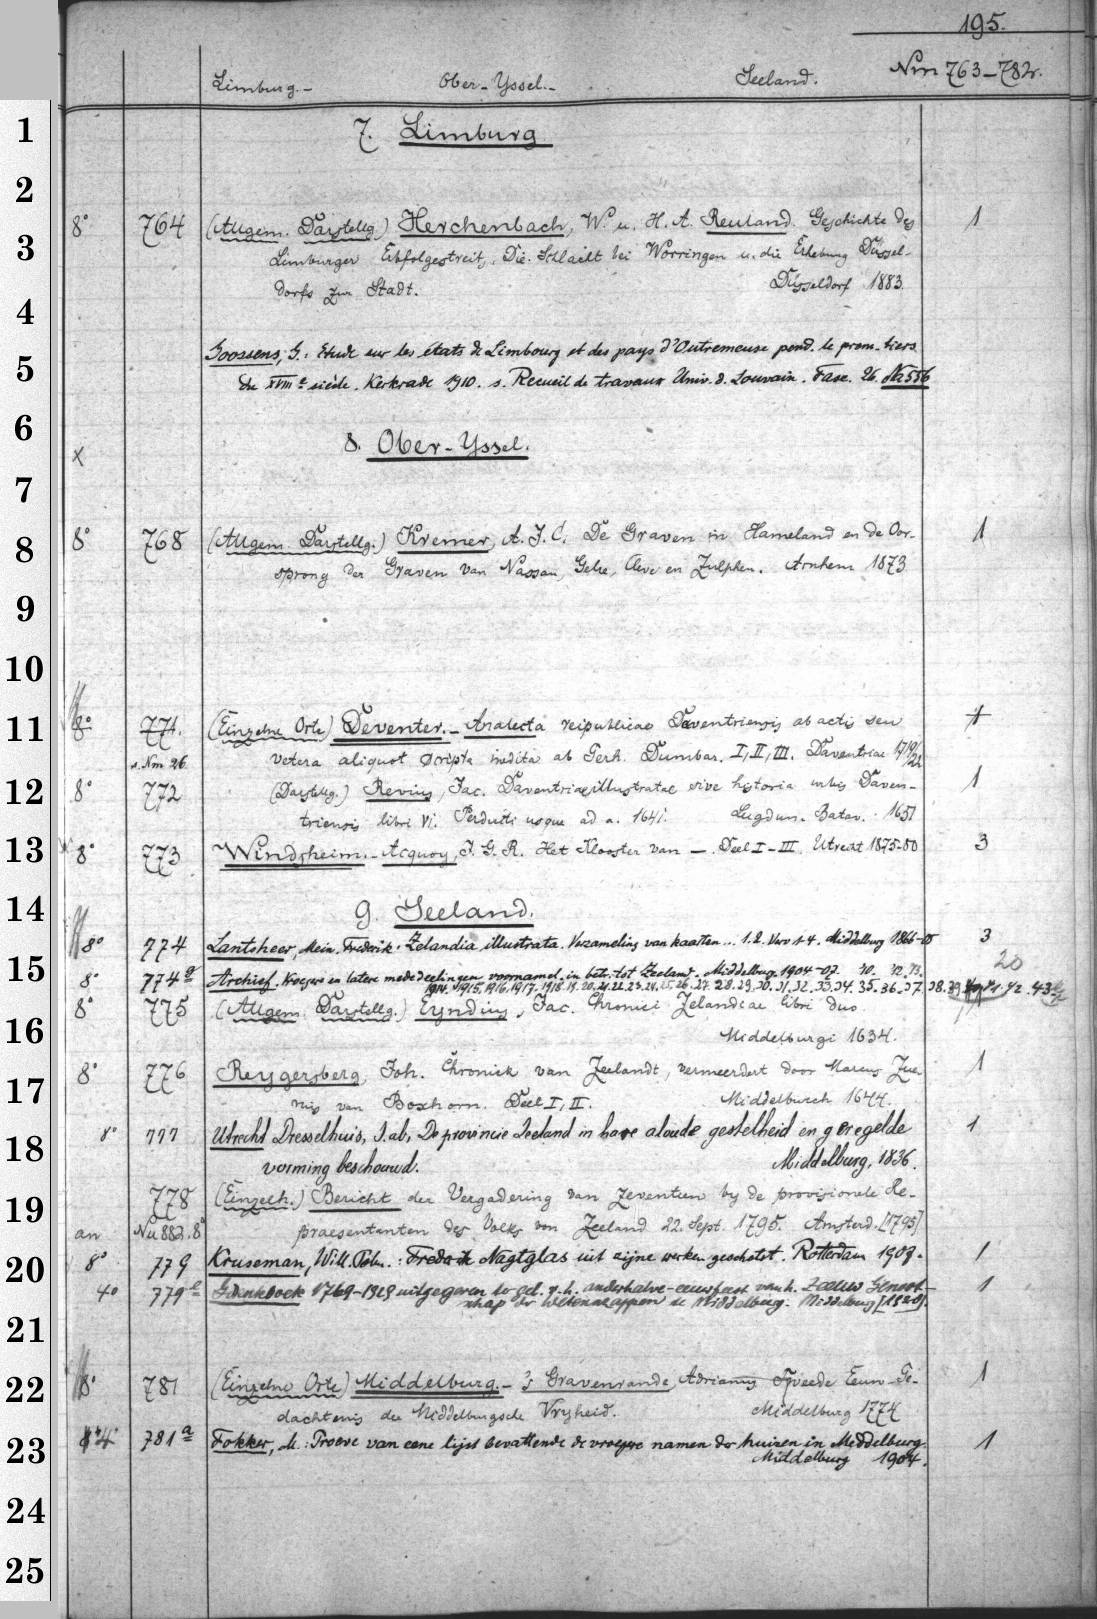 195.
Limburg.- Ober-Yssel.- Seeland. Nrn 763-782.
1
7. Limburg
2
8° 764 (Allgem. Darstellg.) Herchenbach, W. u. H. A. Reuland. Geschichte des 1
3
Limburger Erbfolgestreits. Die Schlacht bei Worringen u. die Erhebung Düssel-
dorfs zur Stadt. Düsseldorf 1883.
4
Goossens, G.: Etude sur les états de Limbourg et des pays d'Outremeuse pend. le prem. tiers
5
du XVIII e siècle. Kerkrade 1910. s. Recueil de travaux Univ. d. Louvain. Fasc. 26. Na 556
6
x 8. Ober-Yssel.
7
8° 768 (Allgem. Darstellg.) Kremer, A. J. C. De Graven in Hameland en de Oor- 1
8
sprong der Graven van Nassau, Gelre, Cleve en Zutphen. Arnhem 1873
9
10
8° 771. (Einzelne Orte) Deventer. - Analecta reipublicae Daventriensis ab actis seu 1
11
s. Nm 26 vetera aliquot scripta inedita ab Gerh. Dumbar. I, II, III. Daventriae 1719/22
12
8° 772 (Darstellg.) Revius, Jac. Daventriae illustratae sive historia urbis Daven- 1
triensis libri VI. Perducti usque ad a. 1641. Lugdun. Batav. 1651
13
8° 773 Windsheim. - Acquoy, J. G. R. Het Klooster van - . Deel I-III. Utrecht 1875-80 3
14
9. Seeland.
8° 774 Lantsheer, Mein. Frederik. Zelandia illustrata. Verzameling van kaarten... 1. 2. Verv 1-4. Middelburg 1866-85 3
15
8° 774a Archief. Vroegere en latere mededeelingen voornamel. in betr. tot Zeeland. Middelburg 1904-07. 10. 12. 13. 20
1914. 1915, 1916, 1917. 1918. 19. 20. 21. 22. 23. 24. 25. 26. 27. 28. 29. 30. 31. 32. 33. 34. 35. 36. 37. 38. 39. 41. 42. 43
8° 775 (Allgem. Darstellg.) Eyndius, Jac. Chronici Zelandiae libri duo.
16
Middelburgi 1634.
8° 776 Reygersberg, Joh. Chronick van Zeelandt, vermeerdert door Marcus Zue- 1
17
rius van Boxhorn. Deel I, II. Middelburch 1644.
18
8° 777 Utrecht Dresselhuis, J. ab, De provincie Zeeland in hare aloude gesteldheid en geregelde 1
vorming beschouwd. Middelburg, 1836.
778 (Einzelh.) Bericht der Vergadering van Zeventien by de provisionele Re-
19
an Na 882. 8° praesentanten des Volks van Zeeland 22. Sept. 1795. Amsterd. [1795]
20
8° 779 Kruseman, Will. : Frederik Nagtglas uit zijne werken geschetst. Rotterdam 1903. 1
4° 779a Gedenkboek 1769-1919 uitgegeven ter gel. v. h. anderhalve-eeuwfeest van h. Zeeuw Genoot- 1
schap der Wetenschappen te Middelburg. Middelburg [1920].
21
22
8° 781 (Einzelne Orte) Middelburg. - 's Gravenzande, Adrianus Tweede Eeuw-Ge- 1
dachtenis der Middelburgsche Vryheid. Middelburg 1774
23
4° 781a Fokker, A.: Proeve van eene lijst bevattende de vroegere namen der huizen in Middelburg. 1
Middelburg 1904.
24
25